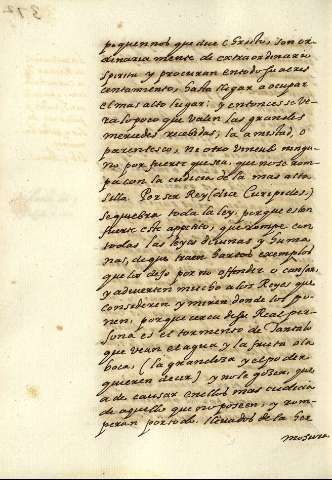 pequennos que dice Cristo, son or
dinariamente de extraordinario
spiritu y procuran en todo su acres
centamiento, hasta llegar a ocupar
el mas alto lugar: y entonces se ve
ra lo poco que valen las grandes
mercedes recebidas, la amistad, o
parentesco, ni otro vinculo ningu
no por fuerte que sea, que no se rom
pa con la cudicia de la mas alta
silla. Por ser Rey (dice Euripides)
se quiebra toda la ley, porque es tan
fuerte este apetito, que rompe con
todas las leyes divinas y huma
nas, de que traen hartos exemplos
que los dejo por no offender o cansar,
y advierten mucho a los Reyes que
consideren y miren donde los po
nen, porque cerca de su Real per
sona es el tormento de Tantalo
que vean el agua y la fruta a la
boca, (la grandeza y el poder
quieren decir) y no le gozen, que
a de causar en ellos mas cudicia
de aquello que no poseen, y rom
peran por todo. llevados de la her
mosura